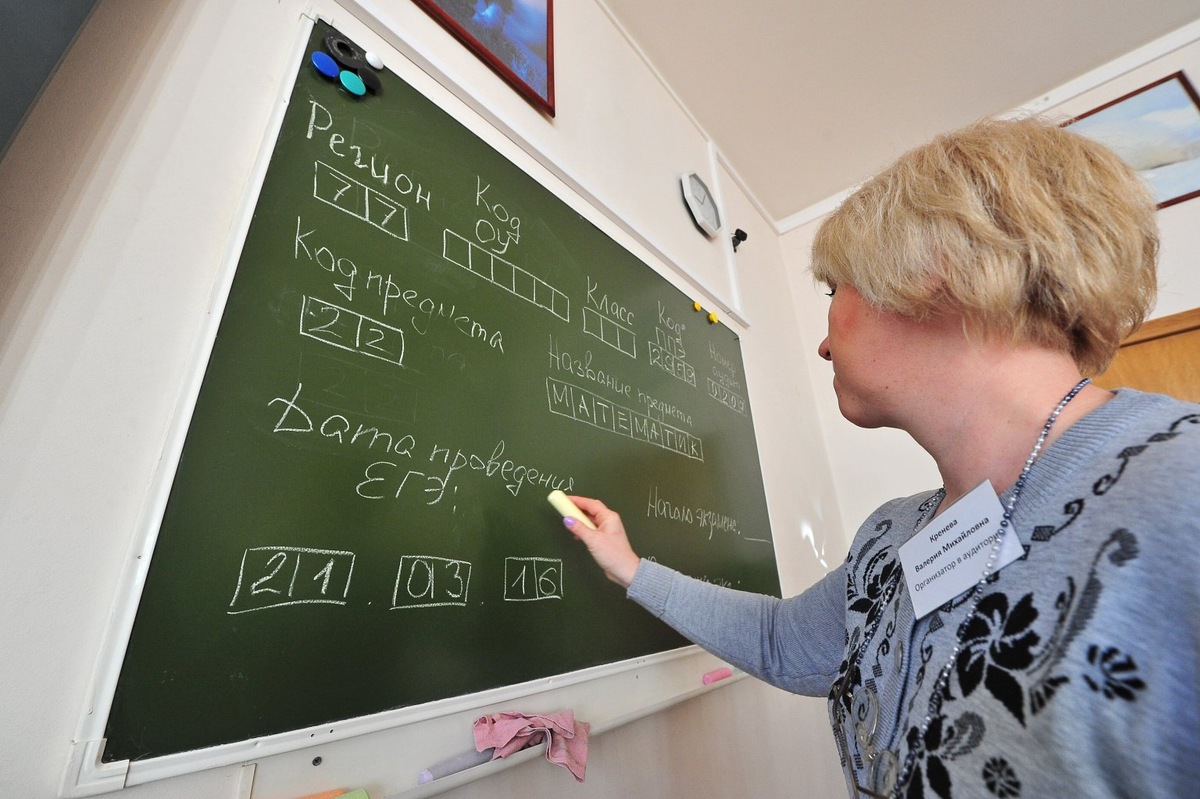 Регион
77
Код
ОУ
Код предмета
22
Класс
Код
ППЭ
Номер
0207
Название предмета
МАТЕМАТИК
Дата проведения
ЕГЭ:
21.03.16
Начало экзамена:
Кренева
Валерия Михайловна
Организатор в аудитории